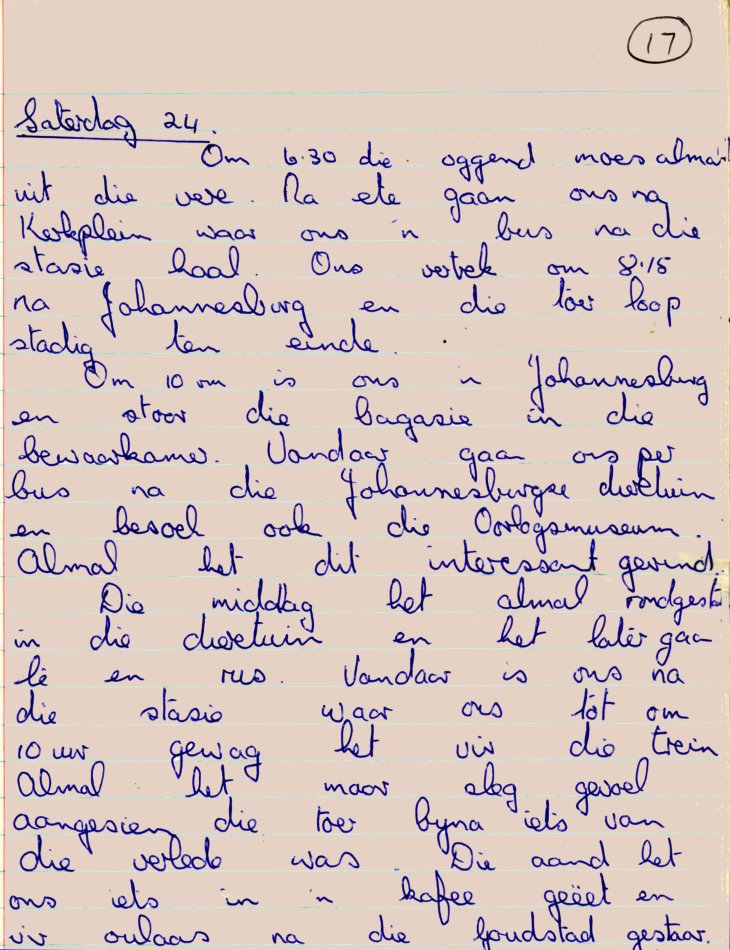 17
Saterdag 24.
Om 6.30 die oggend moes almal
uit die vere. Na ete gaan ons na
Kerkplein waar ons 'n bus na die
stasie haal. Ons vertrek om 8.15
na Johannesburg en die toer loop
stadig ten einde.
Om 10 vm is ons in Johannesburg
en stoor die bagasie in die
bewaarkamer. Vandaar gaan ons per
bus na die Johannesburgse dieretuin
en besoek ook die Oorlogsmuseum.
Almal het dit interessant gevind.
Die middag het almal
in die dieretuin en het later gaan
lê en rus. Vandaar is ons na
die stasie waar ons tot om
10 uur gewag het vir die trein
Almal het maar sleg gevoel
aangesien die toer byna iets van
die verlede was. Die aand het
ons iets in 'n kafee geëet en
vir oulaas na die Goudstad gestaar.